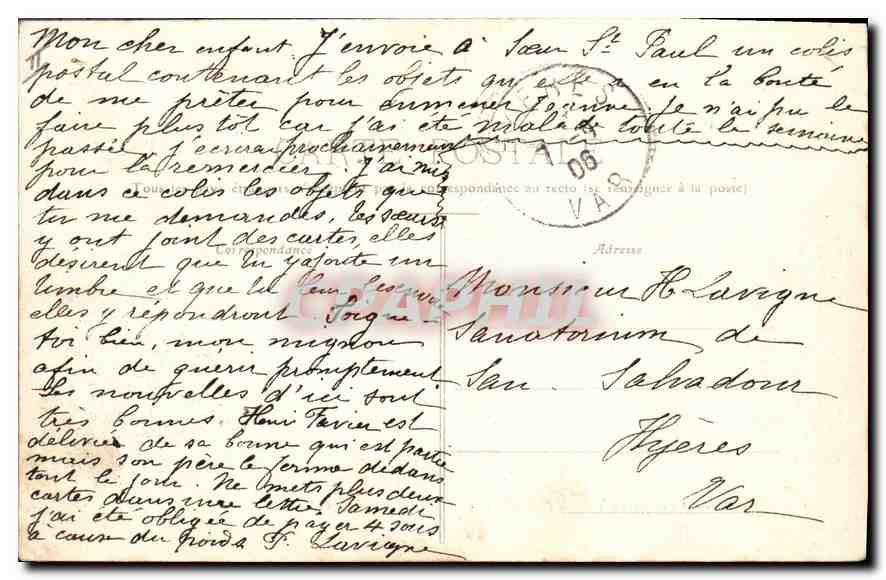 Mon cher enfant J'envoie à Sœur St Paul un colis
postal contenant les objets qu'elle a eu la bonté
de me prêter pour emmener Jeanne je n'ai pu le
faire plus tôt car j'ai été malade toute la semaine
passée j'écrirai prochainement
pour la remercier. J'ai mis
dans ce colis les objets que
tu me demandes, les sœurs
y ont joint des cartes, elles
désirent que tu y ajoute un
timbre et que tu leur
elles y répondront. Soigne-
toi bien, mon mignon
afin de guérir promptement
Les nouvelles d'ici sont
très bonnes. Henri Favier est
délivré de sa bonne qui est partie
mais son père le ferme dedans
tout le jour. Ne mets plus deux
cartes dans une lettre, Samedi
j'ai été obligée de payer 4 sous
à cause du poids F. Lavigne
HYÈRES
06
VAR
CARTE POSTALE
Tous les pays étrangers n'acceptent pas la correspondance au recto (se renseigner à la poste)
Correspondance
Adresse
CPAPHIL
Monsieur H Lavigne
Sanatorium de
San Salvadour
Hyères
Var